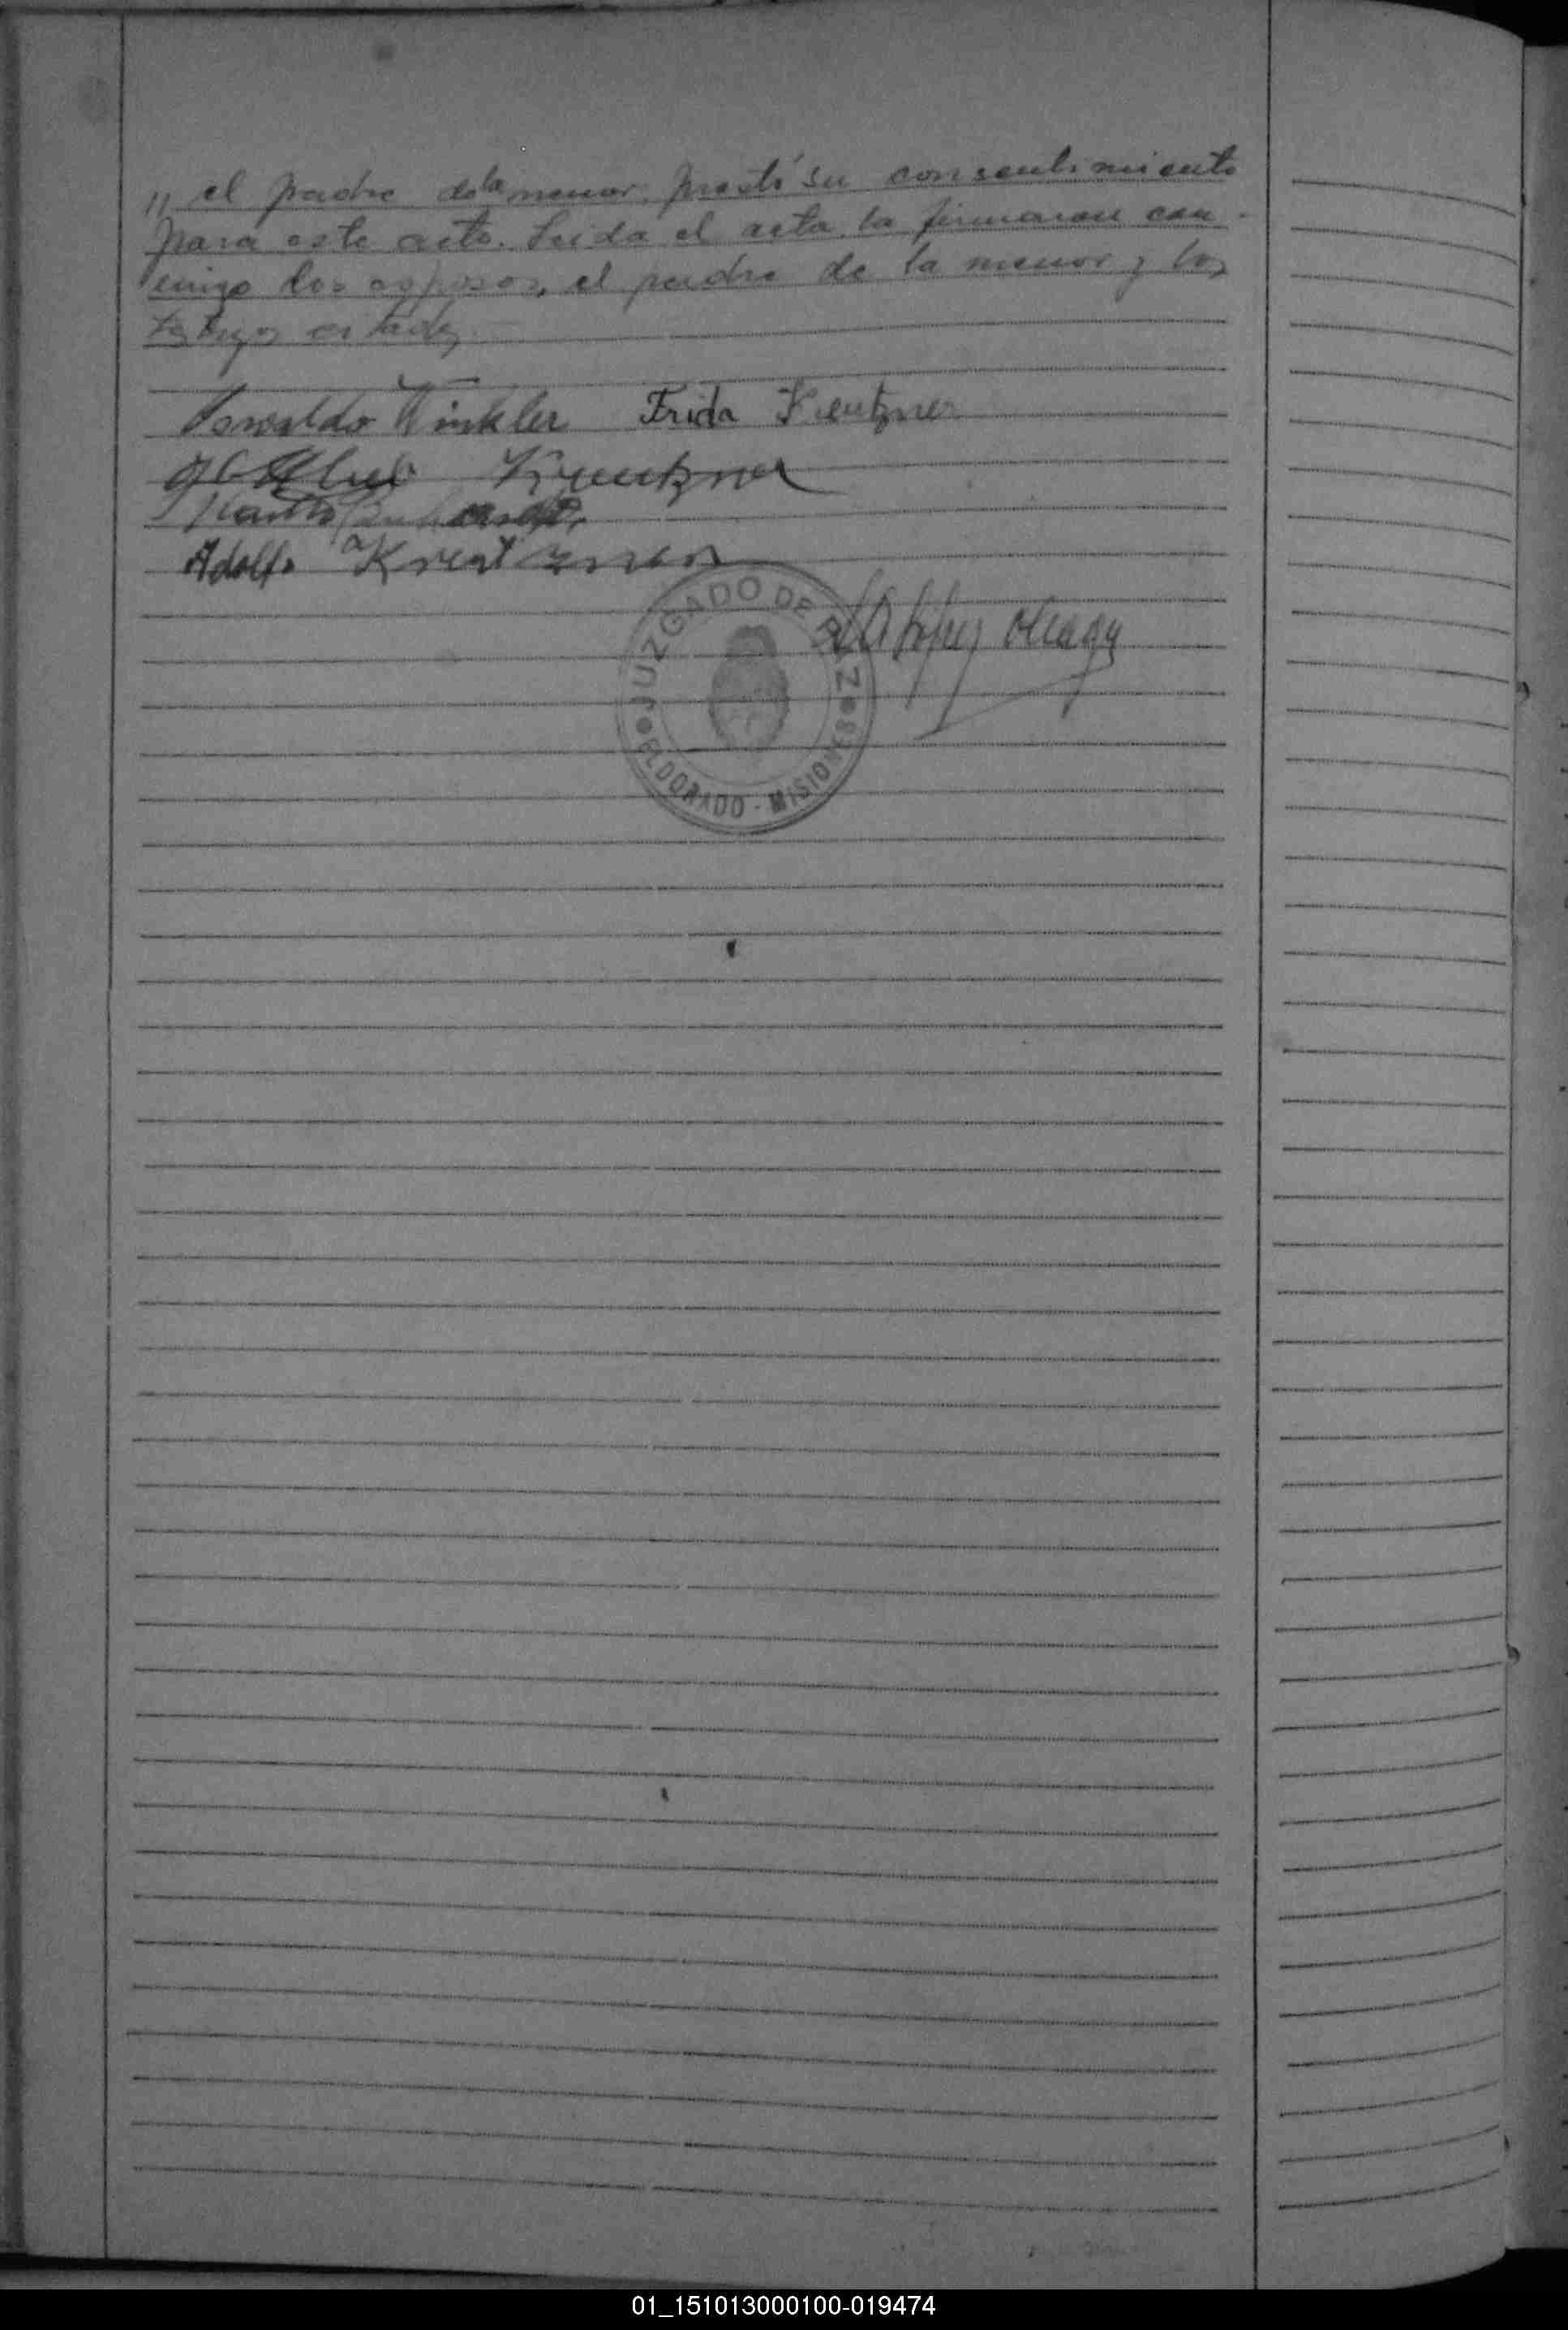 " el padre de la menor, prestó su consentimiento
para este acto. Leida el acta la firmaron con-
migo los esposos, el padre de la menor y los
testigos citados.
Oswaldo Winkler Frida Kreutzner
Kreutzner
Adolfo Kreutzner
JUZGADO DE PAZ
ELDORADO - MISIONES
01_151013000100-019474